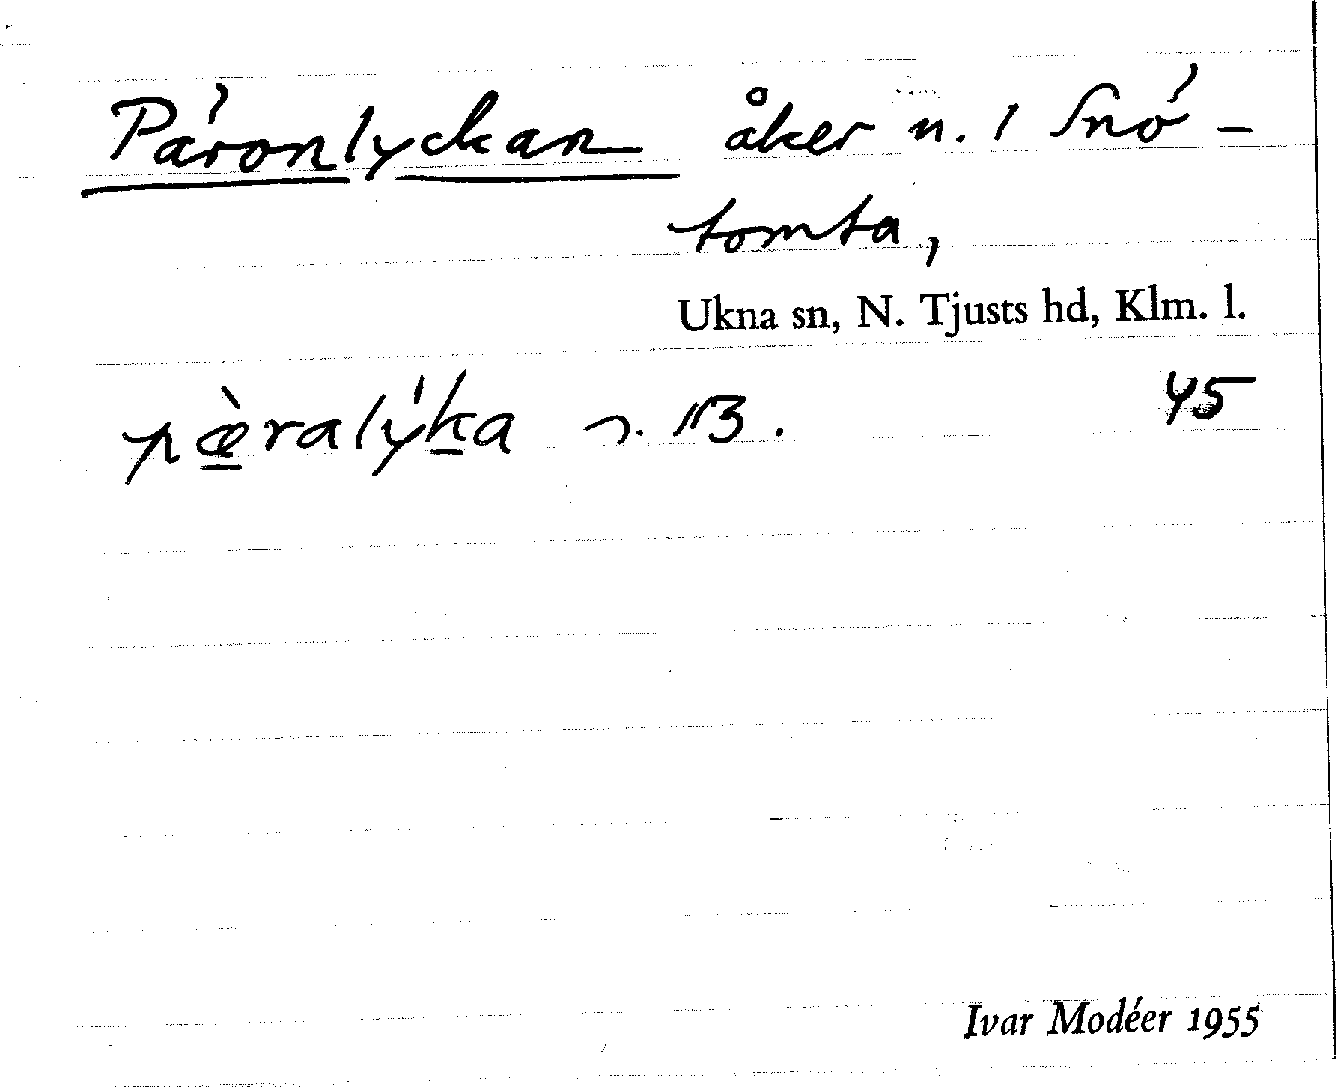 Päronlyckan åker n. 1 Snö-
tomta,
Ukna sn, N. Tjusts hd, Klm. l.
pæ̀ralýka
45
Ivar Modéer 1955